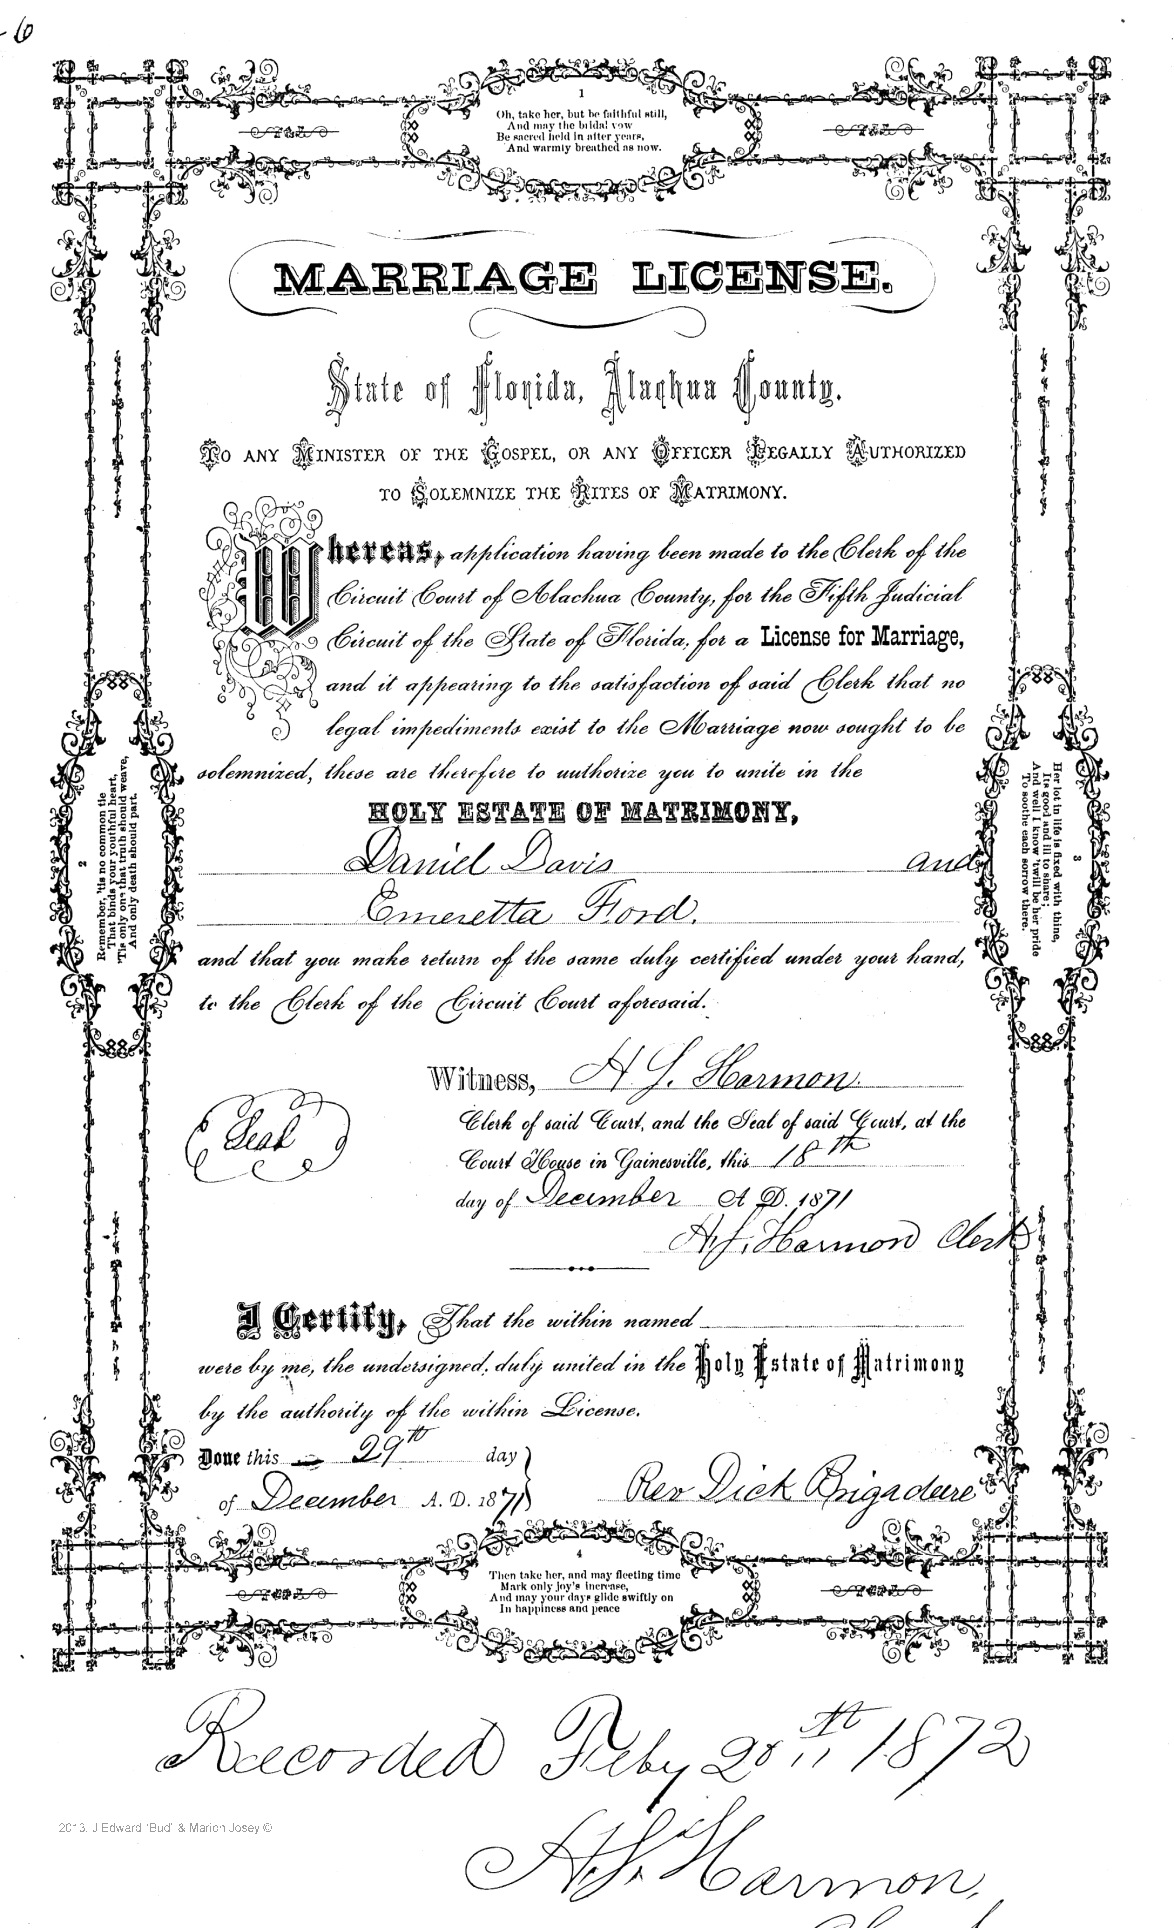 -6
1
Oh, take her, but be faithful still,
And may the bridal vow
Be sacred held in after years,
And warmly breathed as now.
MARRIAGE LICENSE.
State of Florida, Alachua County.
TO ANY MINISTER OF THE GOSPEL, OR ANY OFFICER LEGALLY AUTHORIZED
TO SOLEMNIZE THE RITES OF MATRIMONY.
Whereas, application having been made to the Clerk of the
Circuit Court of Alachua County, for the Fifth Judicial
Circuit of the State of Florida, for a License for Marriage,
and it appearing to the satisfaction of said Clerk that no
legal impediments exist to the Marriage now sought to be
solemnized, these are therefore to authorize you to unite in the
HOLY ESTATE OF MATRIMONY,
Daniel Davis and
Emeretta Ford.
and that you make return of the same duly certified under your hand,
to the Clerk of the Circuit Court aforesaid.
2
Remember, 'tis no common tie
That binds your youthful heart,
'Tis only one that truth should weave,
And only death should part.
3
Her lot in life is fixed with thine,
Its good and ill to share;
And well I know 'twill be her pride
To soothe each sorrow there.
Witness, H S. Harmon.
Seal
Clerk of said Court, and the Seal of said Court, at the
Court House in Gainesville, this 18th
day of December A D. 1871
H. S. Harmon Clerk
I Certify, That the within named
were by me, the undersigned, duly united in the Holy Estate of Matrimony
by the authority of the within License.
Done this 29th day
of December A. D. 1871
Rev Dick Brigadeere
4
Then take her, and may fleeting time
Mark only joy's increase,
And may your days glide swiftly on
In happiness and peace
Recorded Feby 20th 1872
2013. J Edward "Bud" & Marion Josey ©
H. S. Harmon,